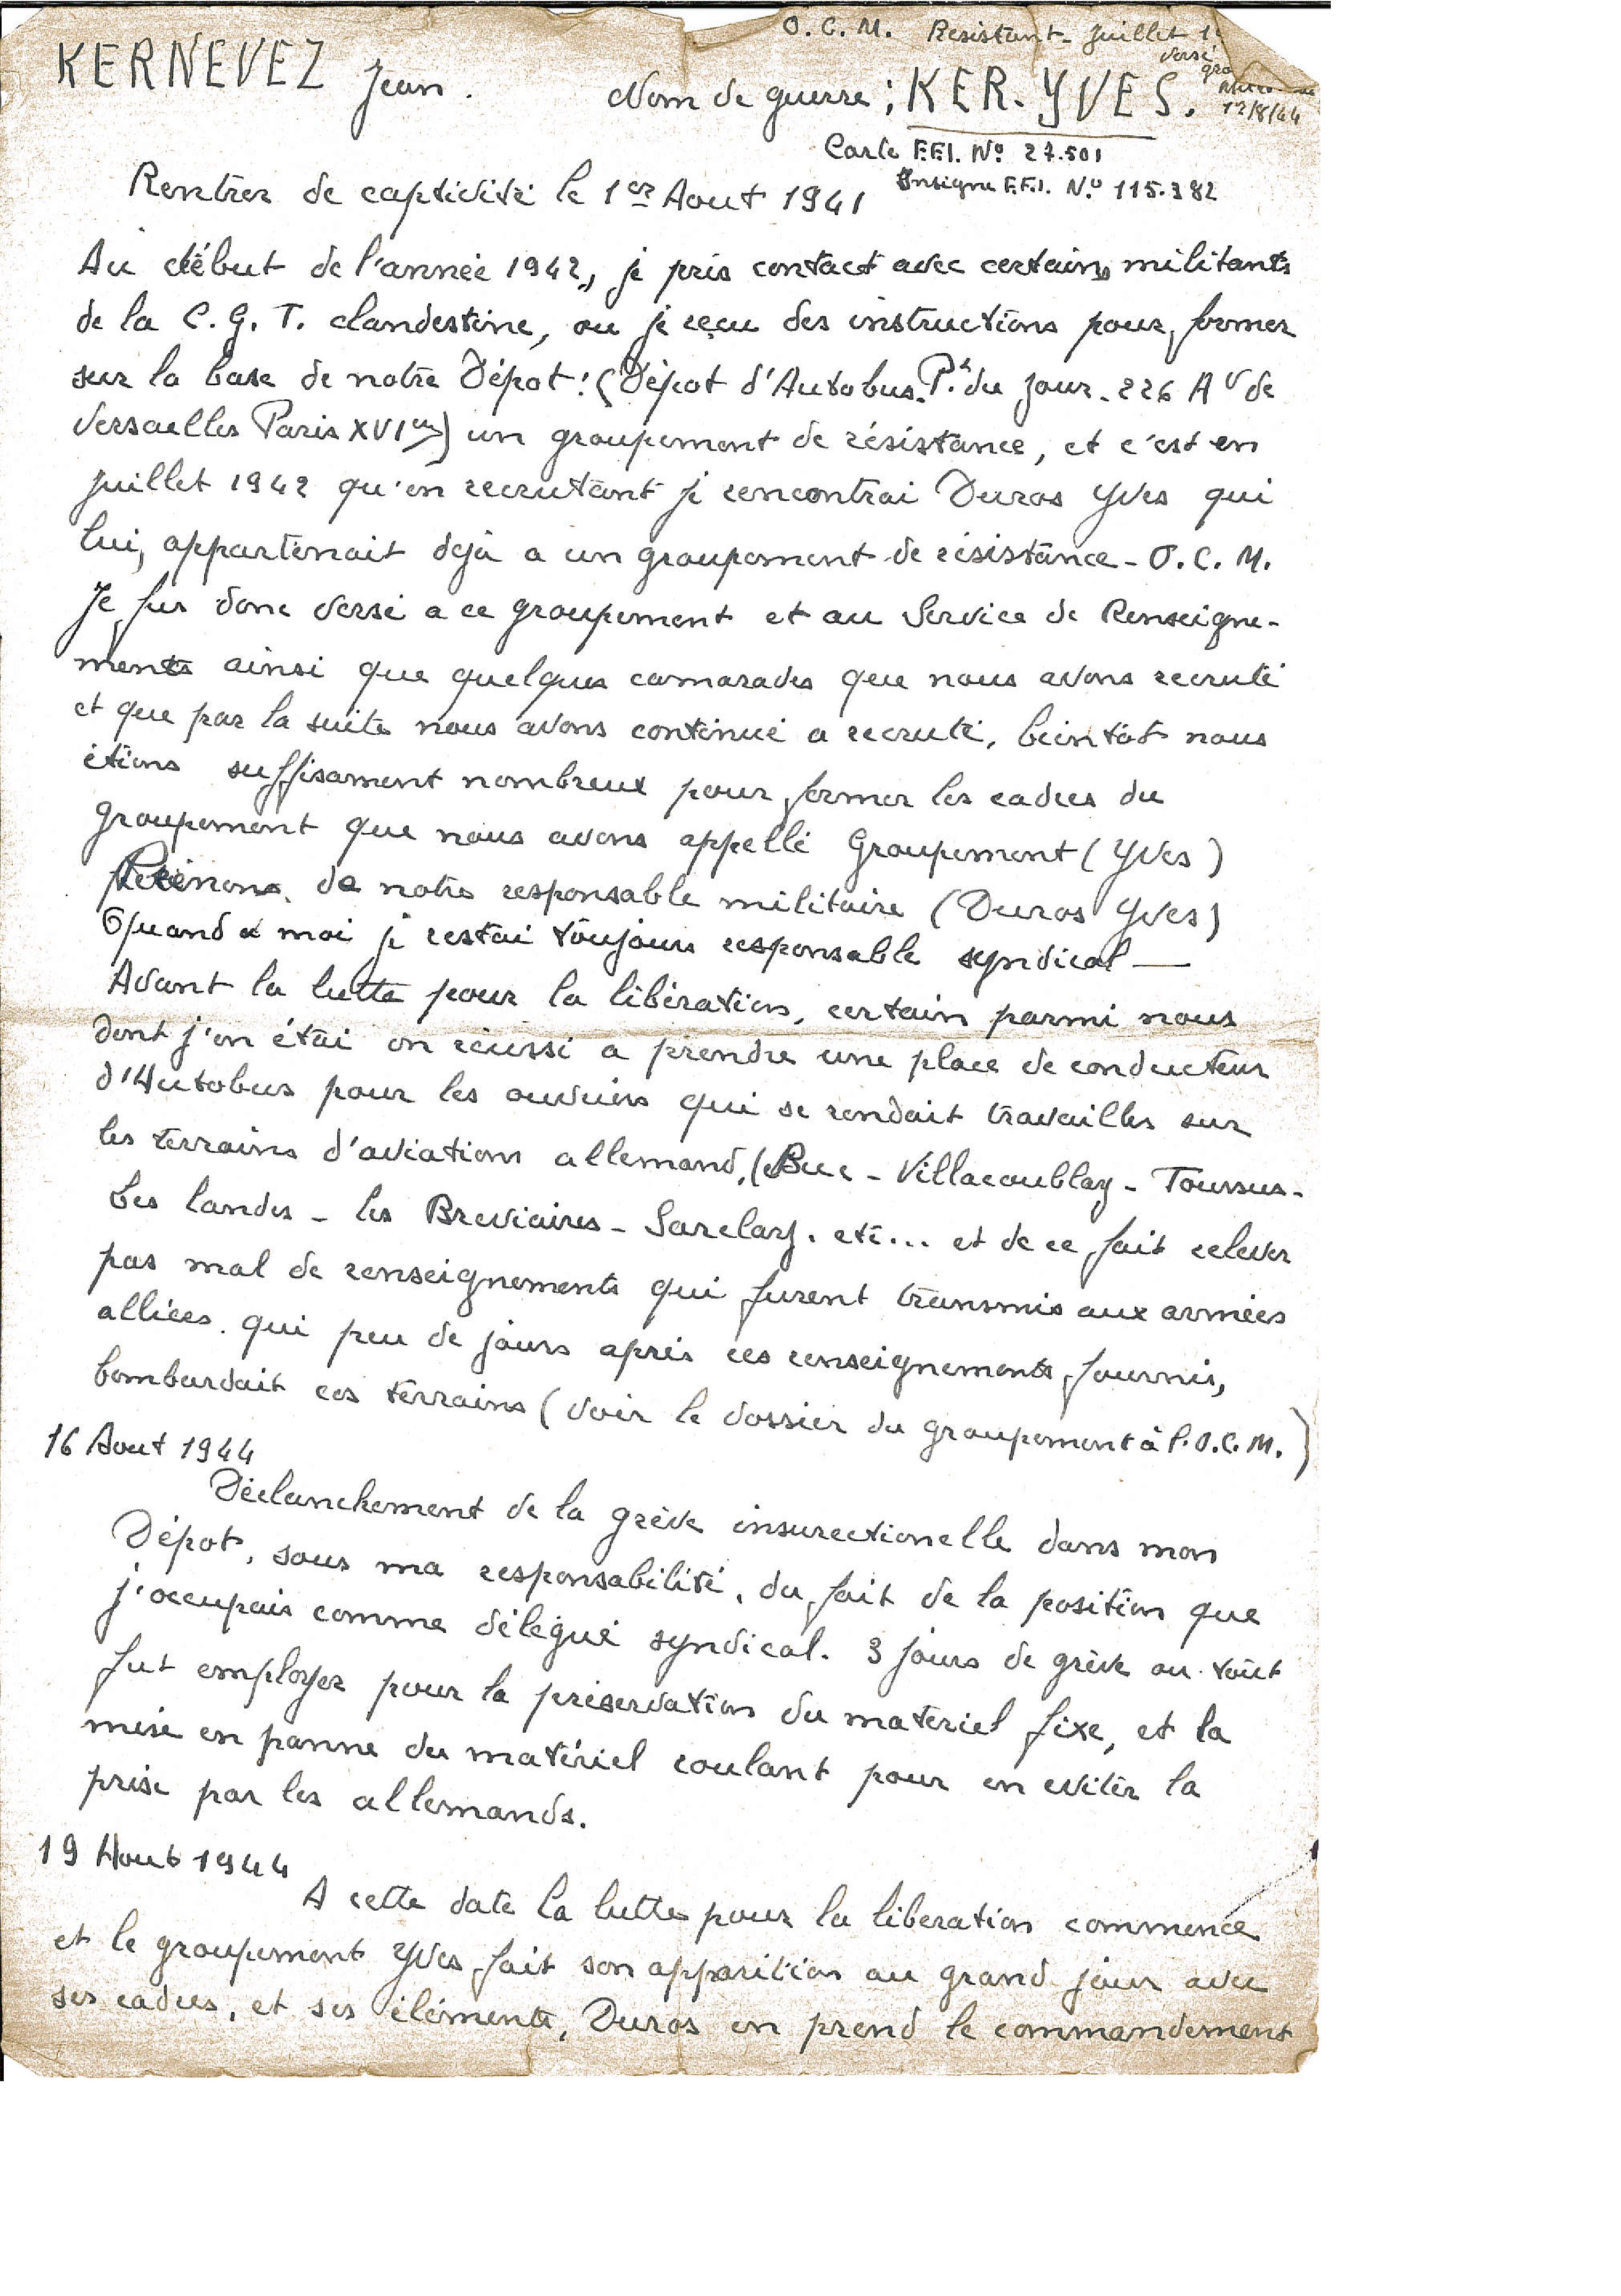 O.C.M. Resistant - Juillet
versé
12/8/44
KERNEVEZ Jean. Nom de guerre : KER-YVES.
Carte F.F.I. No 27.501
Insigne F.F.I. No 115.382
Rentrer de captivité le 1er Aout 1941
Au début de l'année 1942, je pris contact avec certains militants
de la C.G.T. clandestine, ou je reçu des instructions pour former
sur la base de notre Dépot : (Dépot d'Autobus. Pt du Jour - 226 Av de
Versailles Paris XVIem) un groupement de résistance, et c'est en
Juillet 1942 qu'en recrutant je rencontrai Duros Yves qui
lui, appartenait déjà a un groupement de résistance - O.C.M.
Je fus donc versé a ce groupement et au Service de Renseigne-
ments ainsi que quelques camarades que nous avons recruté
et que par la suite nous avons continué a recruté, bientôt nous
étions suffisament nombreux pour former les cadres du
groupement que nous avons appellé Groupement (Yves)
Prénoms de notre responsable militaire (Duros Yves)
Quand a moi je restai toujours responsable syndical —
Avant la lutte pour la libération, certain parmi nous
dont j'en étai on réussi a prendre une place de conducteur
d'Autobus pour les ouvriers qui se rendait travailler sur
les terrains d'aviation allemand, (Buc - Villacoublay - Toussus -
Les landes - les Breviaires - Sarclay. etc... et de ce fait relever
pas mal de renseignements qui furent transmis aux armées
alliées. qui peu de jours après ces renseignements fournis,
bombardait ces terrains (voir le dossier du groupement à l'O.C.M.)
16 Aout 1944
Déclanchement de la grève insurectionelle dans mon
Dépot, sous ma responsabilité, du fait de la position que
j'occupais comme délégué syndical. 3 jours de grève ou tout
fut employer pour la préservation du matériel fixe, et la
mise en panne du matériel roulant pour en eviter la
prise par les allemands.
19 Aout 1944
A cette date la lutte pour la liberation commence
et le groupement Yves fait son apparition au grand jour avec
ses cadres, et ses éléments, Duros en prend le commandement